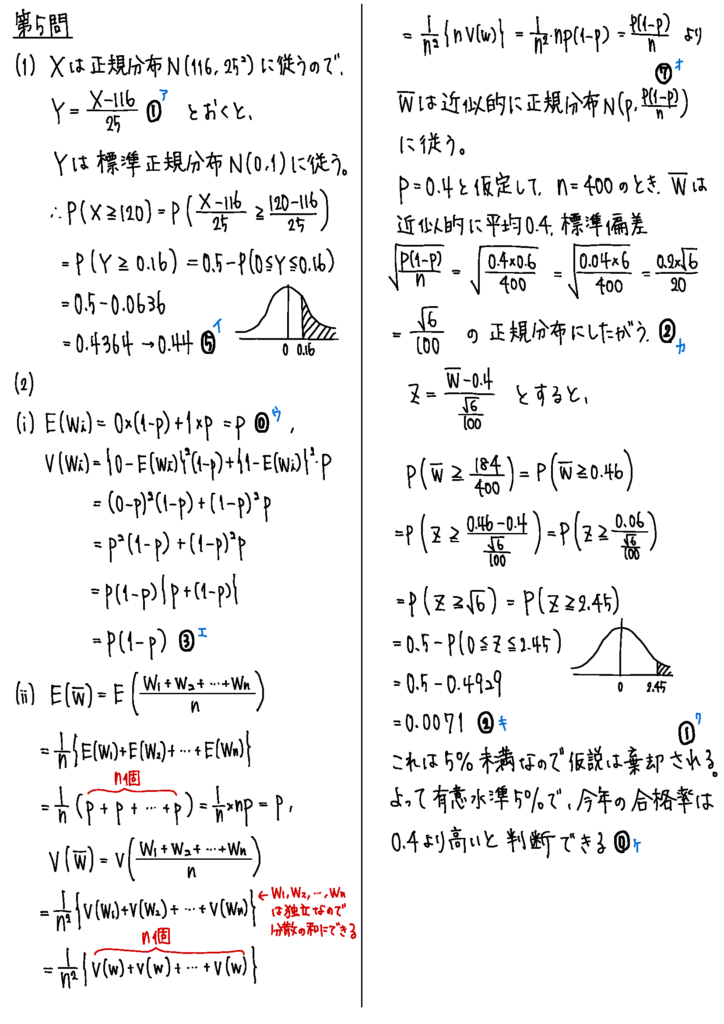 第5問
(1) Xは正規分布N(116, 25²)に従うので、
Y = (X-116)/25 ① ア とおくと、
Yは標準正規分布N(0,1)に従う。
∴ P(X≧120) = P((X-116)/25 ≧ (120-116)/25)
= P(Y≧0.16) = 0.5-P(0≦Y≦0.16)
= 0.5-0.0636
= 0.4364 → 0.44 ⑤ イ
0 0.16
(2)
(i) E(Wi) = 0×(1-p)+1×p = p ⓪ ウ ,
V(Wi) = {0-E(Wi)}²(1-p)+{1-E(Wi)}²・p
= (0-p)²(1-p)+(1-p)²p
= p²(1-p)+(1-p)²p
= p(1-p){p+(1-p)}
= p(1-p) ③ エ
(ii) E(W̄) = E((W₁+W₂+…+Wn)/n)
= 1/n{E(W₁)+E(W₂)+…+E(Wn)}
n個
= 1/n(p+p+…+p) = 1/n×np = p,
V(W̄) = V((W₁+W₂+…+Wn)/n)
= 1/n²{V(W₁)+V(W₂)+…+V(Wn)}
←W₁,W₂,…,Wn
は独立なので
分散の和にできる
n個
= 1/n²{V(w)+V(w)+…+V(w)}
= 1/n²{nV(w)} = 1/n²・np(1-p) = p(1-p)/n より
⑦ オ
W̄は近似的に正規分布N(p, p(1-p)/n)
に従う。
p=0.4と仮定して、n=400のとき、W̄は
近似的に平均0.4、標準偏差
√(p(1-p)/n) = √(0.4×0.6/400) = √(0.04×6/400) = 0.2√6/20
= √6/100 の正規分布にしたがう。② カ
Z = (W̄-0.4)/(√6/100) とすると、
P(W̄≧184/400) = P(W̄≧0.46)
= P(Z≧(0.46-0.4)/(√6/100)) = P(Z≧0.06/(√6/100))
= P(Z≧√6) = P(Z≧2.45)
= 0.5-P(0≦Z≦2.45)
= 0.5-0.4929
0 2.45
= 0.0071 ② キ
① ク
これは5%未満なので仮説は棄却される。
よって有意水準5%で、今年の合格率は
0.4より高いと判断できる ⓪ ケ